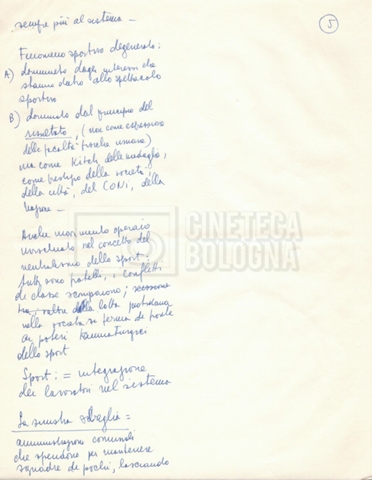 sempre più al sistema —
5
Fenomeno sportivo degenerato:
A) dominato dagli interessi che
stanno dietro allo spettacolo
sportivo
B) dominato dal principio del
risultato, (non come espressione
delle facoltà fisiche umane)
ma come Kitch della medaglia,
come prestigio della società,
della città, del CONI, della
Nazione —
Anche movimento operaio
invischiato nel concetto del
neutralismo dello sport:
tutti sono fratelli, i conflitti
di classe scompaiono;
della lotta
nello
ai poteri taumaturgici
dello sport
Sport: = integrazione
dei lavoratori nel sistema
La sinistra sbaglia =
amministrazioni comunali
che spendono per mantenere
squadre di pochi, lasciando
CINETECA
BOLOGNA